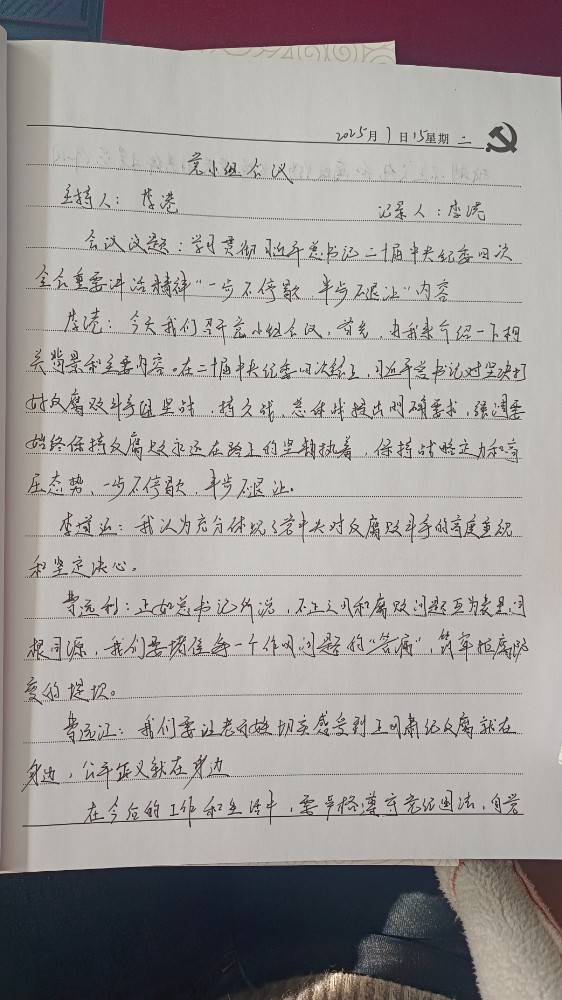 2025月1日15星期二
党小组会议
主持人：李港 记录人：李港
会议议题：学习贯彻习近平总书记二十届中央纪委四次
全会重要讲话精神"一步不停歇 半步不退让"内容
李港：今天我们召开党小组会议，首先，由我来介绍一下相
关背景和主要内容。在二十届中央纪委四次会上，习近平总书记对坚决打
好反腐败斗争攻坚战，持久战，总体战提出明确要求，强调要
始终保持反腐败永远在路上的坚韧执着，保持战略定力和高
压态势、一步不停歇，半步不退让。
李道：我认为充分体现了党中央对反腐败斗争的高度重视
和坚定决心。
鲁远利：正如总书记所说，不正之风和腐败问题互为表里，同
根同源，我们要堵住每一个作风问题的"管涌"，筑牢拒腐防
变的堤坝。
鲁远江：我们要让老百姓切实感受到正风肃纪反腐就在
身边，公平正义就在身边
在今后的工作和生活中，要严格遵守党纪国法，自觉